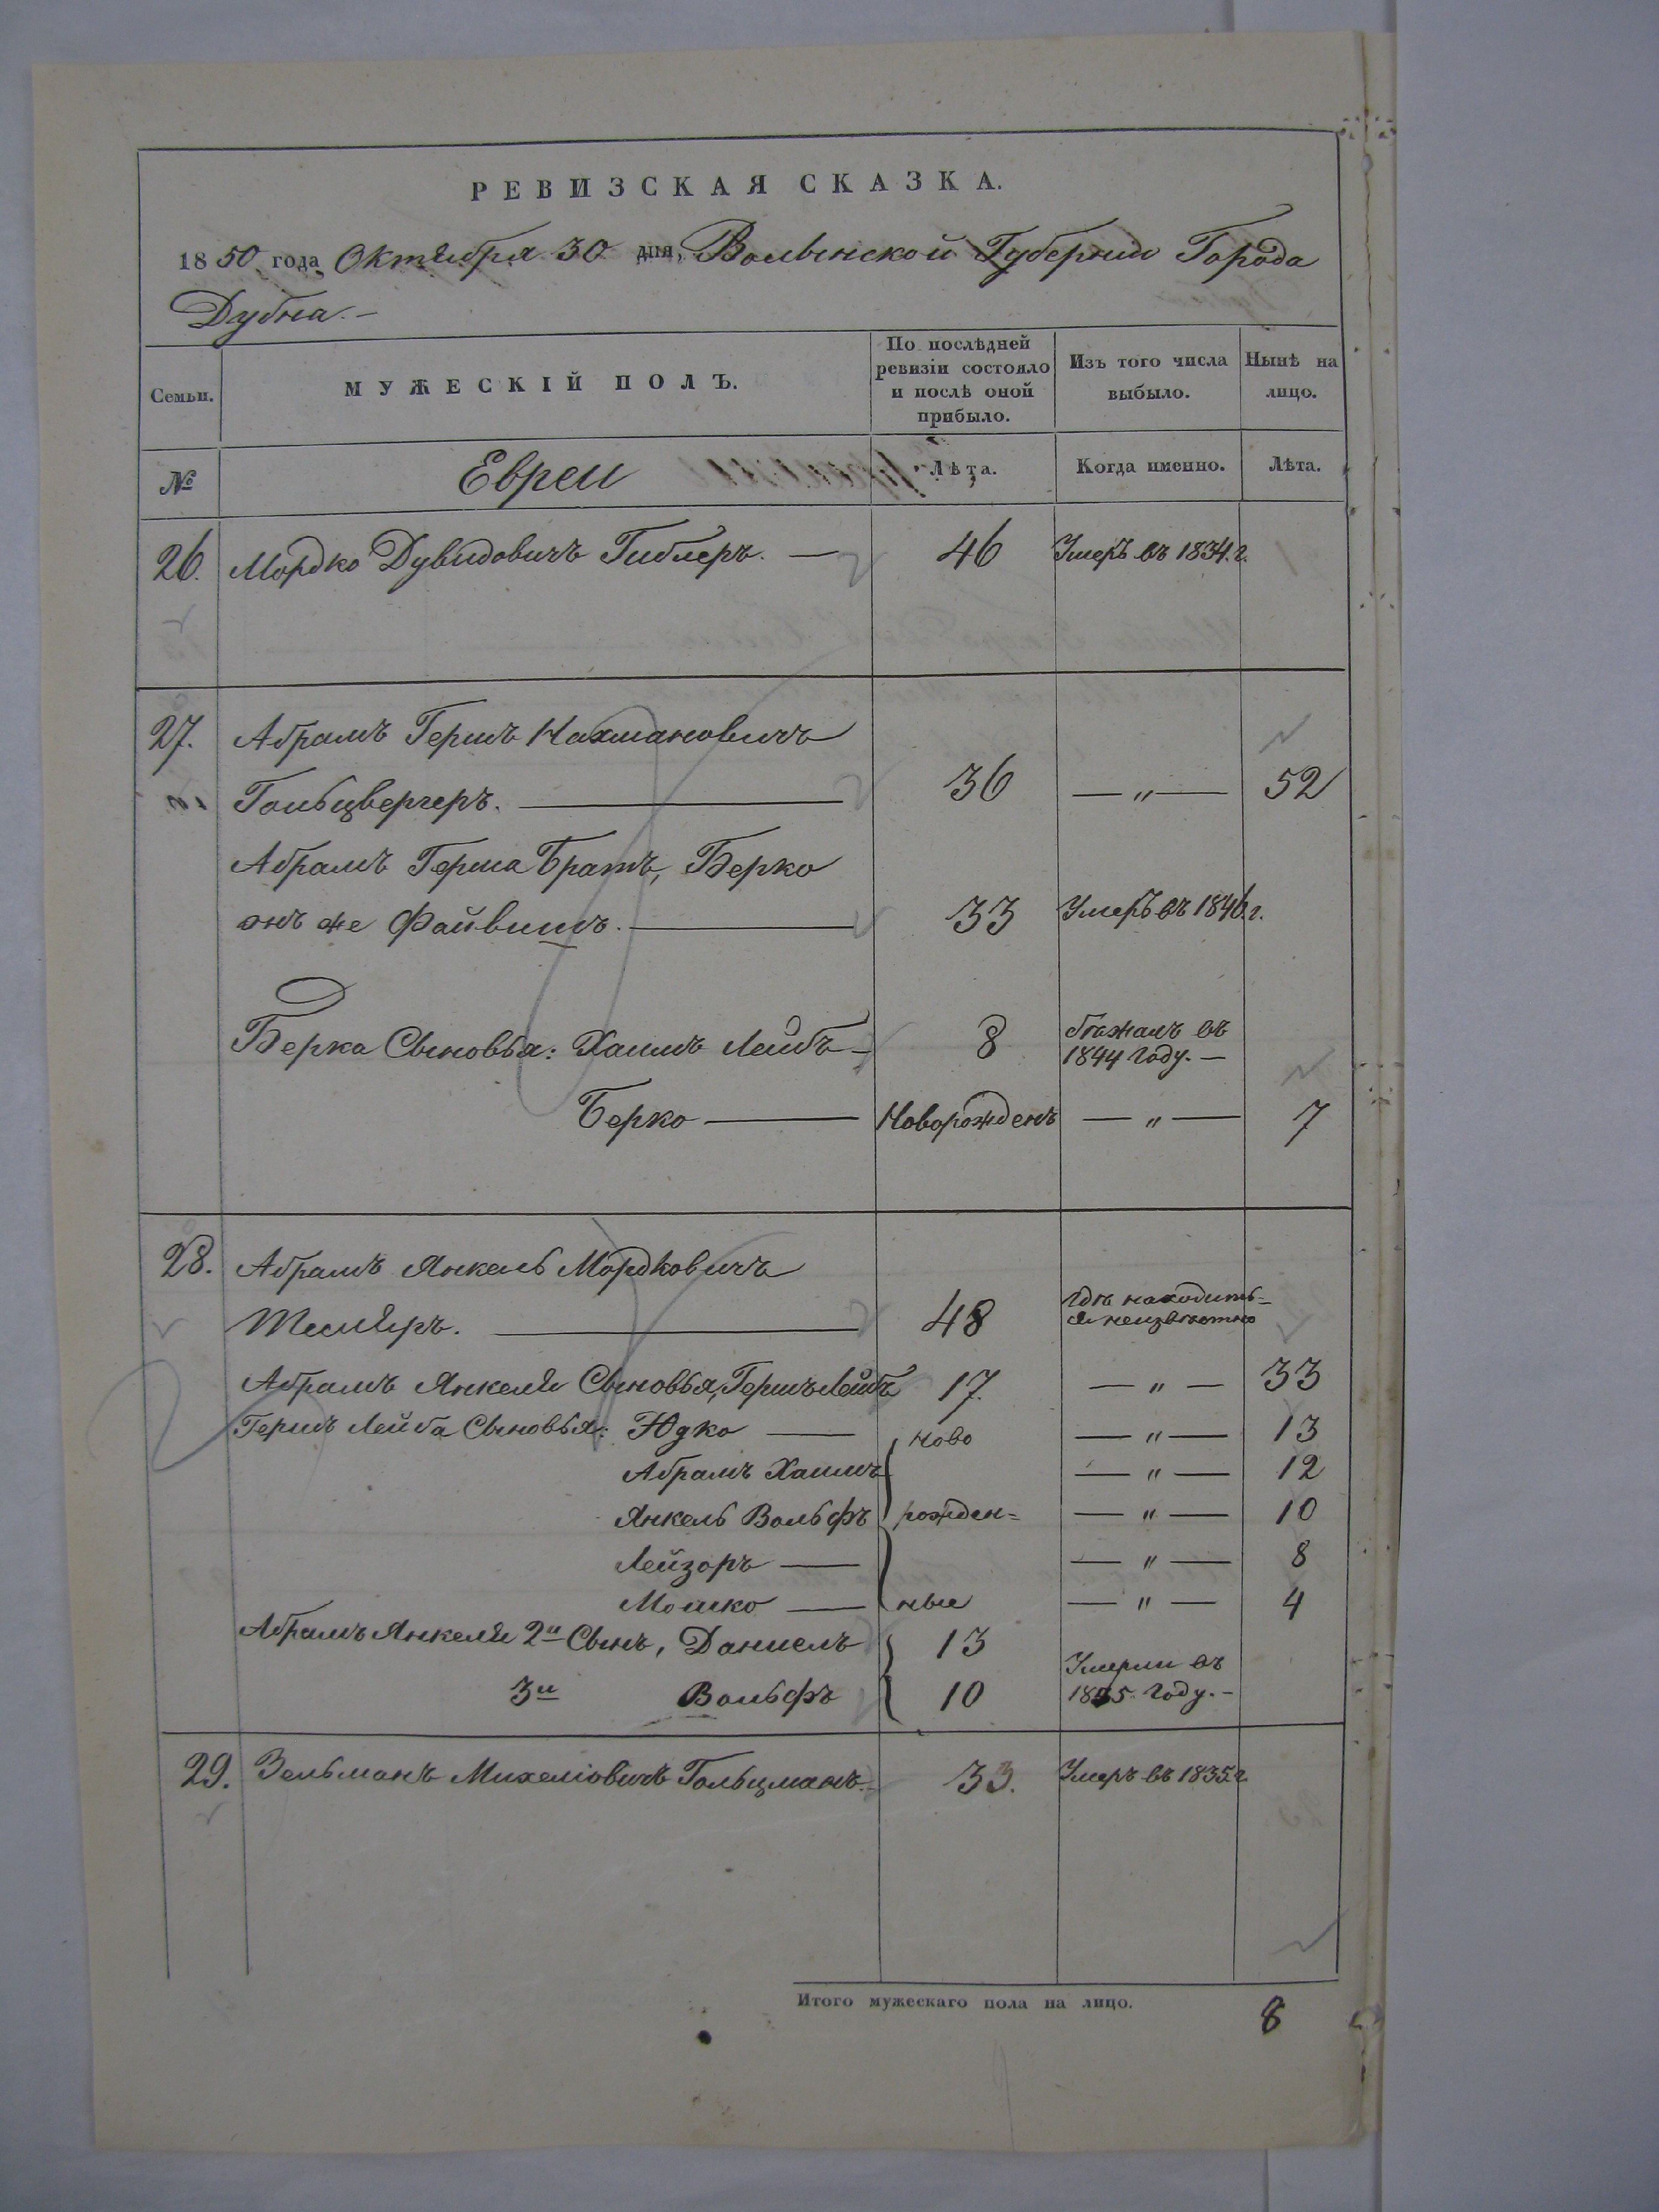 РЕВИЗСКАЯ СКАЗКА.
1850 года Октября 30 дня, Волынской Губернии Города
Дубна.-
Семьи.
МУЖЕСКІЙ ПОЛЪ.
По послѣдней
ревизіи состояло
и послѣ оной
прибыло.
Изъ того числа
выбыло.
Нынѣ на
лицо.
№
Евреи
Лѣта.
Когда именно.
Лѣта.
26. Мордко Дувидовичъ Гиблеръ. — 46 Умеръ въ 1834.г.
27. Абрамъ Гершъ Нахмановичъ
Гольцвергеръ. — 36 — " — 52
Абрамъ Герша Братъ, Берко
онъ же Файвишъ. — 33 Умеръ въ 1846.г.
Берка Сыновья: Хаимъ Лейбъ — 8 бѣжалъ въ
1844 году. —
Берко — Новорожденъ — " — 7
28. Абрамъ Янкель Мордковичъ
48 гдѣ находить-
ся неизвѣстно
Абрамъ Янкеля Сыновья, Гершъ Лейбъ 17. — " — 33
Гершъ Лейба Сыновья: Юдко — ново — " — 13
Абрамъ Хаимъ — " — 12
Янкель Вольфъ рожден= — " — 10
Лейзоръ — — " — 8
Мошко — ные — " — 4
Абрамъ Янкеля 2й Сынъ, Даниелъ 13
3й Вольфъ 10 Умерли въ
1835 году. -
29. Зельманъ Михелiовичъ Гольцманъ. 33. Умеръ въ 1835.г.
Итого мужескаго пола на лицо. 8